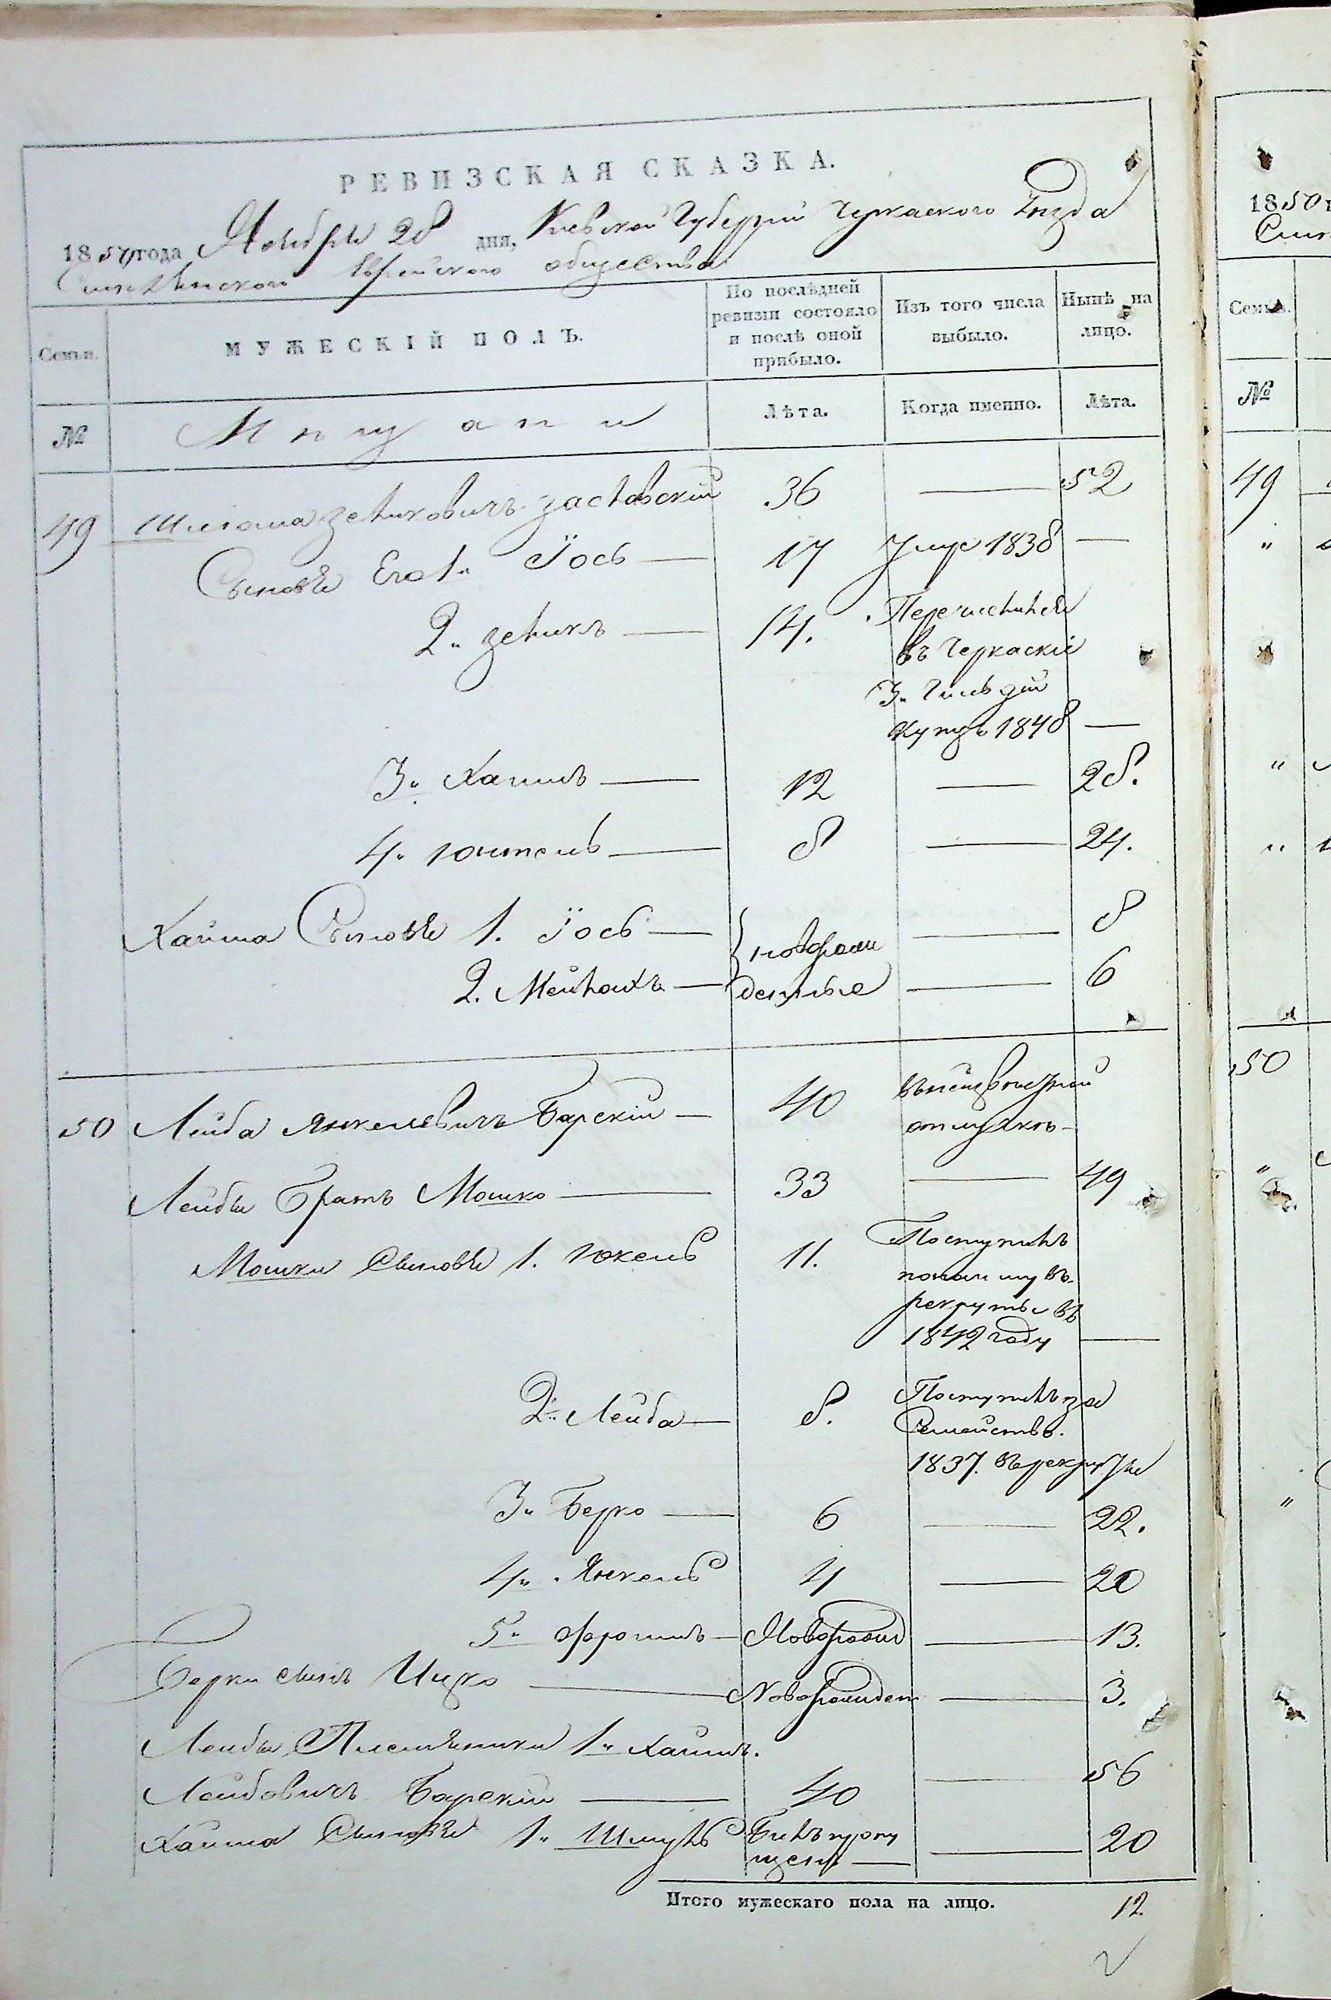 РЕВИЗСКАЯ СКАЗКА.
1850 года Ноября 28 дня, Киевской Губернии Черкаского Уезда
Еврейского общества
Семьи.
МУЖЕСКІЙ ПОЛЪ.
По послѣдней ревизіи состояло и послѣ оной прибыло.
Изъ того числа выбыло.
Нынѣ на лицо.
№
Мещане
Лѣта.
Когда именно.
Лѣта.
49 Шлиома Зеликовичъ Заславский 36 — 52
Сыновья Его 1. Іось — 17 Умер 1838 —
2. Зеликъ — 14. Перечислился
въ Черкаскіе
3. Гильдии
Купцы 1848 —
3. Хаимъ — 12 — 28.
4. Юнтель — 8 — 24.
Хаима Сыновья 1. Іось — новорож — 8
2. Мейлохъ — денные — 6
50 Лейба Янкелевичъ Барскій — 40 въ неизвестной
отлучке —
Лейбы Братъ Мошко — 33 — 49
Мошки Сыновья 1. Юкель 11. Поступилъ
в
рекруты въ
1842 году —
2. Лейба — 8. Поступилъ за
Семейство
1837. въ рекруты
3. Берко — 6 — 22.
4. Янкель 4 — 20
5. Фроимъ — Новорожд — 13.
Берки сынъ Ицко — Новорожден — 3.
Лейбы Племянники 1. Хаимъ.
Лейбовичъ Барский — 40 — 56
Хаима Сыновья 1. Шмуль Былъ пропу
щенъ — 20
Итого мужескаго пола на лицо. 12
1850
Семьи.
№
49
50